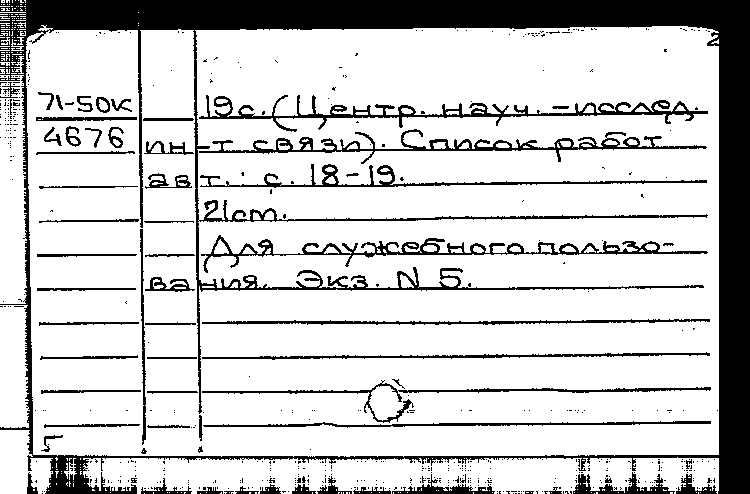 2
71-50к 19 с. (Центр. науч.-исслед.
4676 ин-т связи). Список работ
авт.: с. 18-19.
21cm.
Для служебного пользо-
вания. Экз. N 5.
5